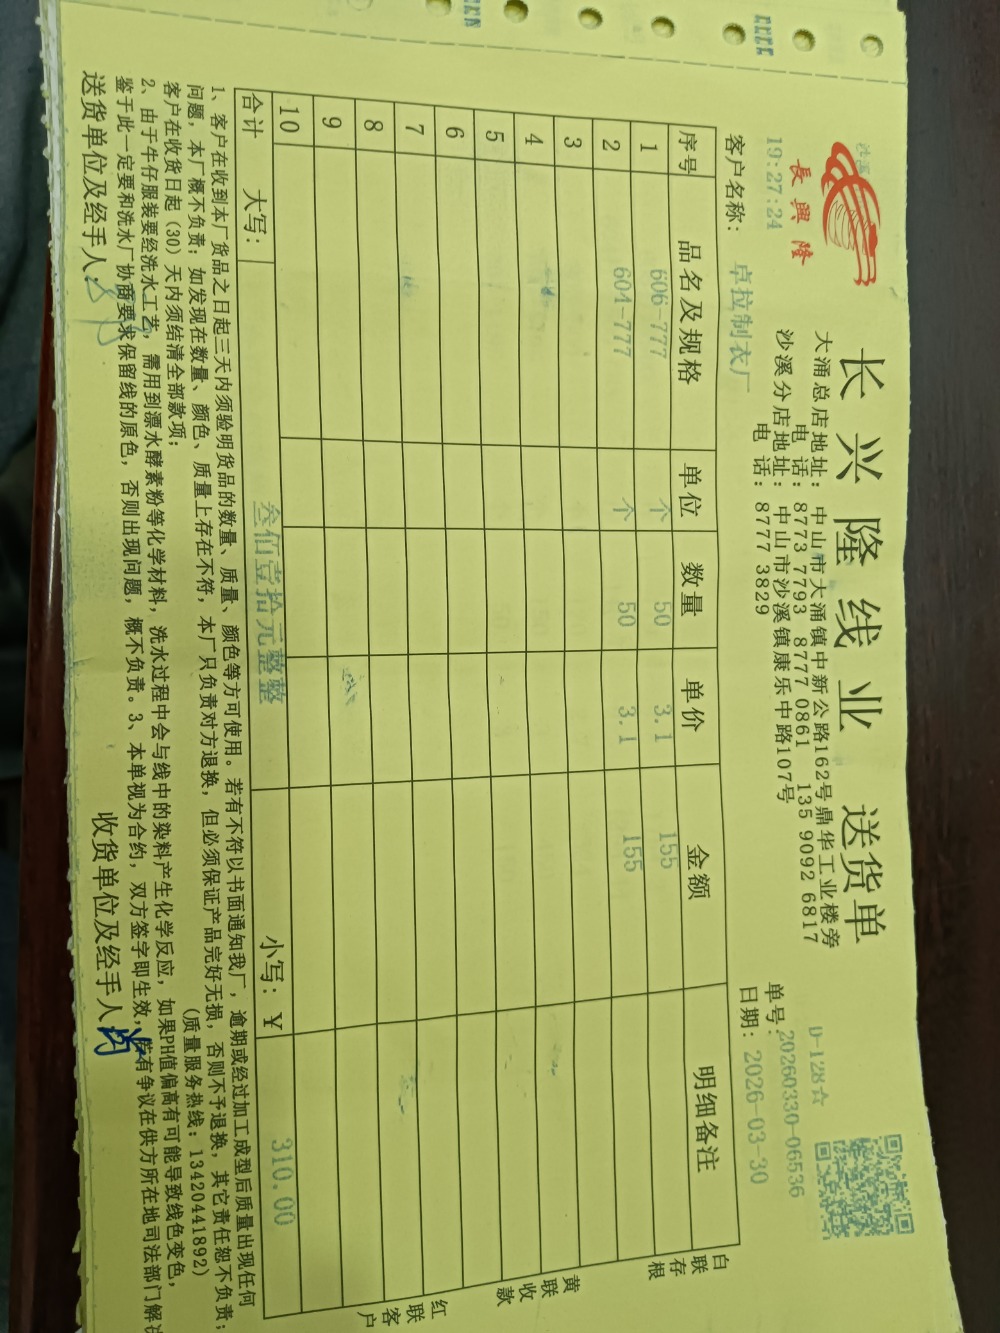 長興隆
长兴隆线业 送货单
大涌总店地址：中山市大涌镇中新公路162号鼎华工业楼旁
电 话：8773 7793 8777 0861 135 9092 6817
沙溪分店地址：中山市沙溪镇康乐中路107号
电 话：8777 3829
D-128☆
单号：20260330-06536
日期：2026-03-30
19:27:24
客户名称：卓拉制衣厂
序号 品名及规格 单位 数量 单价 金额 明细备注
1 606-777 个 50 3.1 155
2 604-777 个 50 3.1 155
3
4
5
6
7
8
9
10
合计 大写：叁佰壹拾元整整 小写：￥ 310.00
白联存根
黄联收款
红联客户
1、客户在收到本厂货品之日起三天内须验明货品的数量、质量、颜色等方可使用。若有不符以书面通知我厂，逾期或经过加工成型后质量出现任何
问题，本厂概不负责；如发现在数量、颜色、质量上存在不符，本厂只负责对方退换，但必须保证产品完好无损，否则不予退换，其它责任恕不负责；
客户在收货日起（30）天内须结清全部款项； (质量服务热线：13420441892)
2、由于牛仔服装要经洗水工艺，需用到漂水酵素粉等化学材料，洗水过程中会与线中的染料产生化学反应，如果PH值偏高有可能导致线色变色，
鉴于此一定要和洗水厂协商要求保留线的原色，否则出现问题，概不负责。3、本单视为合约，双方签字即生效，若有争议在供方所在地司法部门解
送货单位及经手人： 收货单位及经手人：